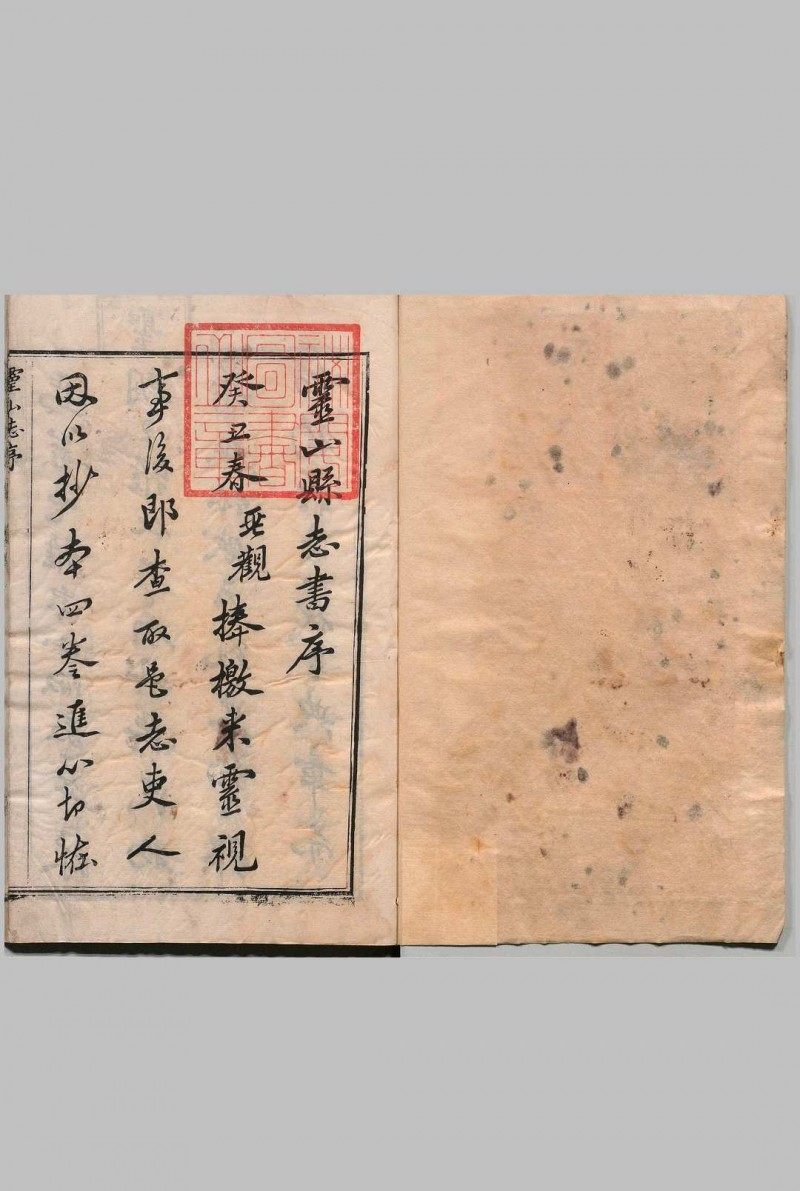 靈山縣志書序
癸丑春丕觀捧檄来靈視
事後即查取邑志吏人
因以抄本四卷進心切恠
靈山志序